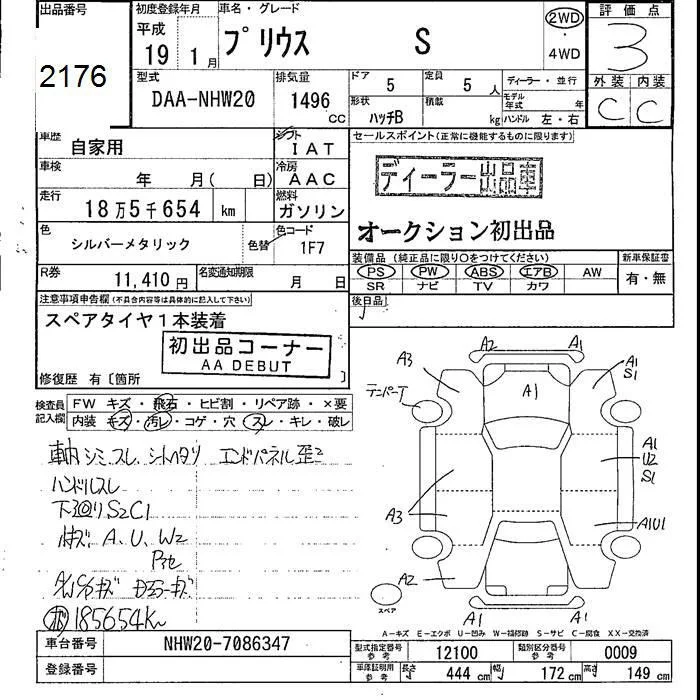 出品番号
2176
初度登録年月
平成
19 1月
車名・グレード
プリウス S
2WD
・
4WD
評価点
3
外装 内装
C C
型式
DAA-NHW20
排気量
1496
CC
ドア
5
定員
5人
形状
ハッチB
積載
kg
ディーラー・並行
モデル年式 年
ハンドル 左・右
車歴
自家用
シフト
IAT
車検
年 月( 日)
冷房
AAC
走行
18万5千654 km
燃料
ガソリン
色
シルバーメタリック
色替
色コード
1F7
R券
11,410円
名変通知期限
月 日
セールスポイント(正常に機能するものに限ります)
ディーラー出品車
オークション初出品
装備品 (純正品に限り○をつけてください)
PS PW ABS エアB AW
SR ナビ TV カワ
新車保証書
有・無
後日品
注意事項申告欄(不具合内容等は具体的に記入して下さい)
スペアタイヤ1本装着
初出品コーナー
AA DEBUT
修復歴 有〔箇所 〕
検査員記入欄
FW キズ・飛石・ヒビ割・リペア跡・×要
内装 キズ・汚レ・コゲ・穴・スレ・キレ・破レ
シミ、スレ、シートヘタリ エンドパネル歪
ハンドルスレ
下廻りS2C1
A、U、W2
185654K
A2 A1
A3 A1
S1
A1
テンパーT
A1
U2
S1
A3
A1U1
A2
スペア
A1 A1
A-キズ E-エクボ U-凹み W-補修跡 S-サビ C-腐食 XX-交換済
車台番号
NHW20-7086347
登録番号
型式指定番号 参考
12100
類別区分番号 参考
0009
車庫証明用 参考
長さ 444 cm 幅 172 cm 高さ 149 cm